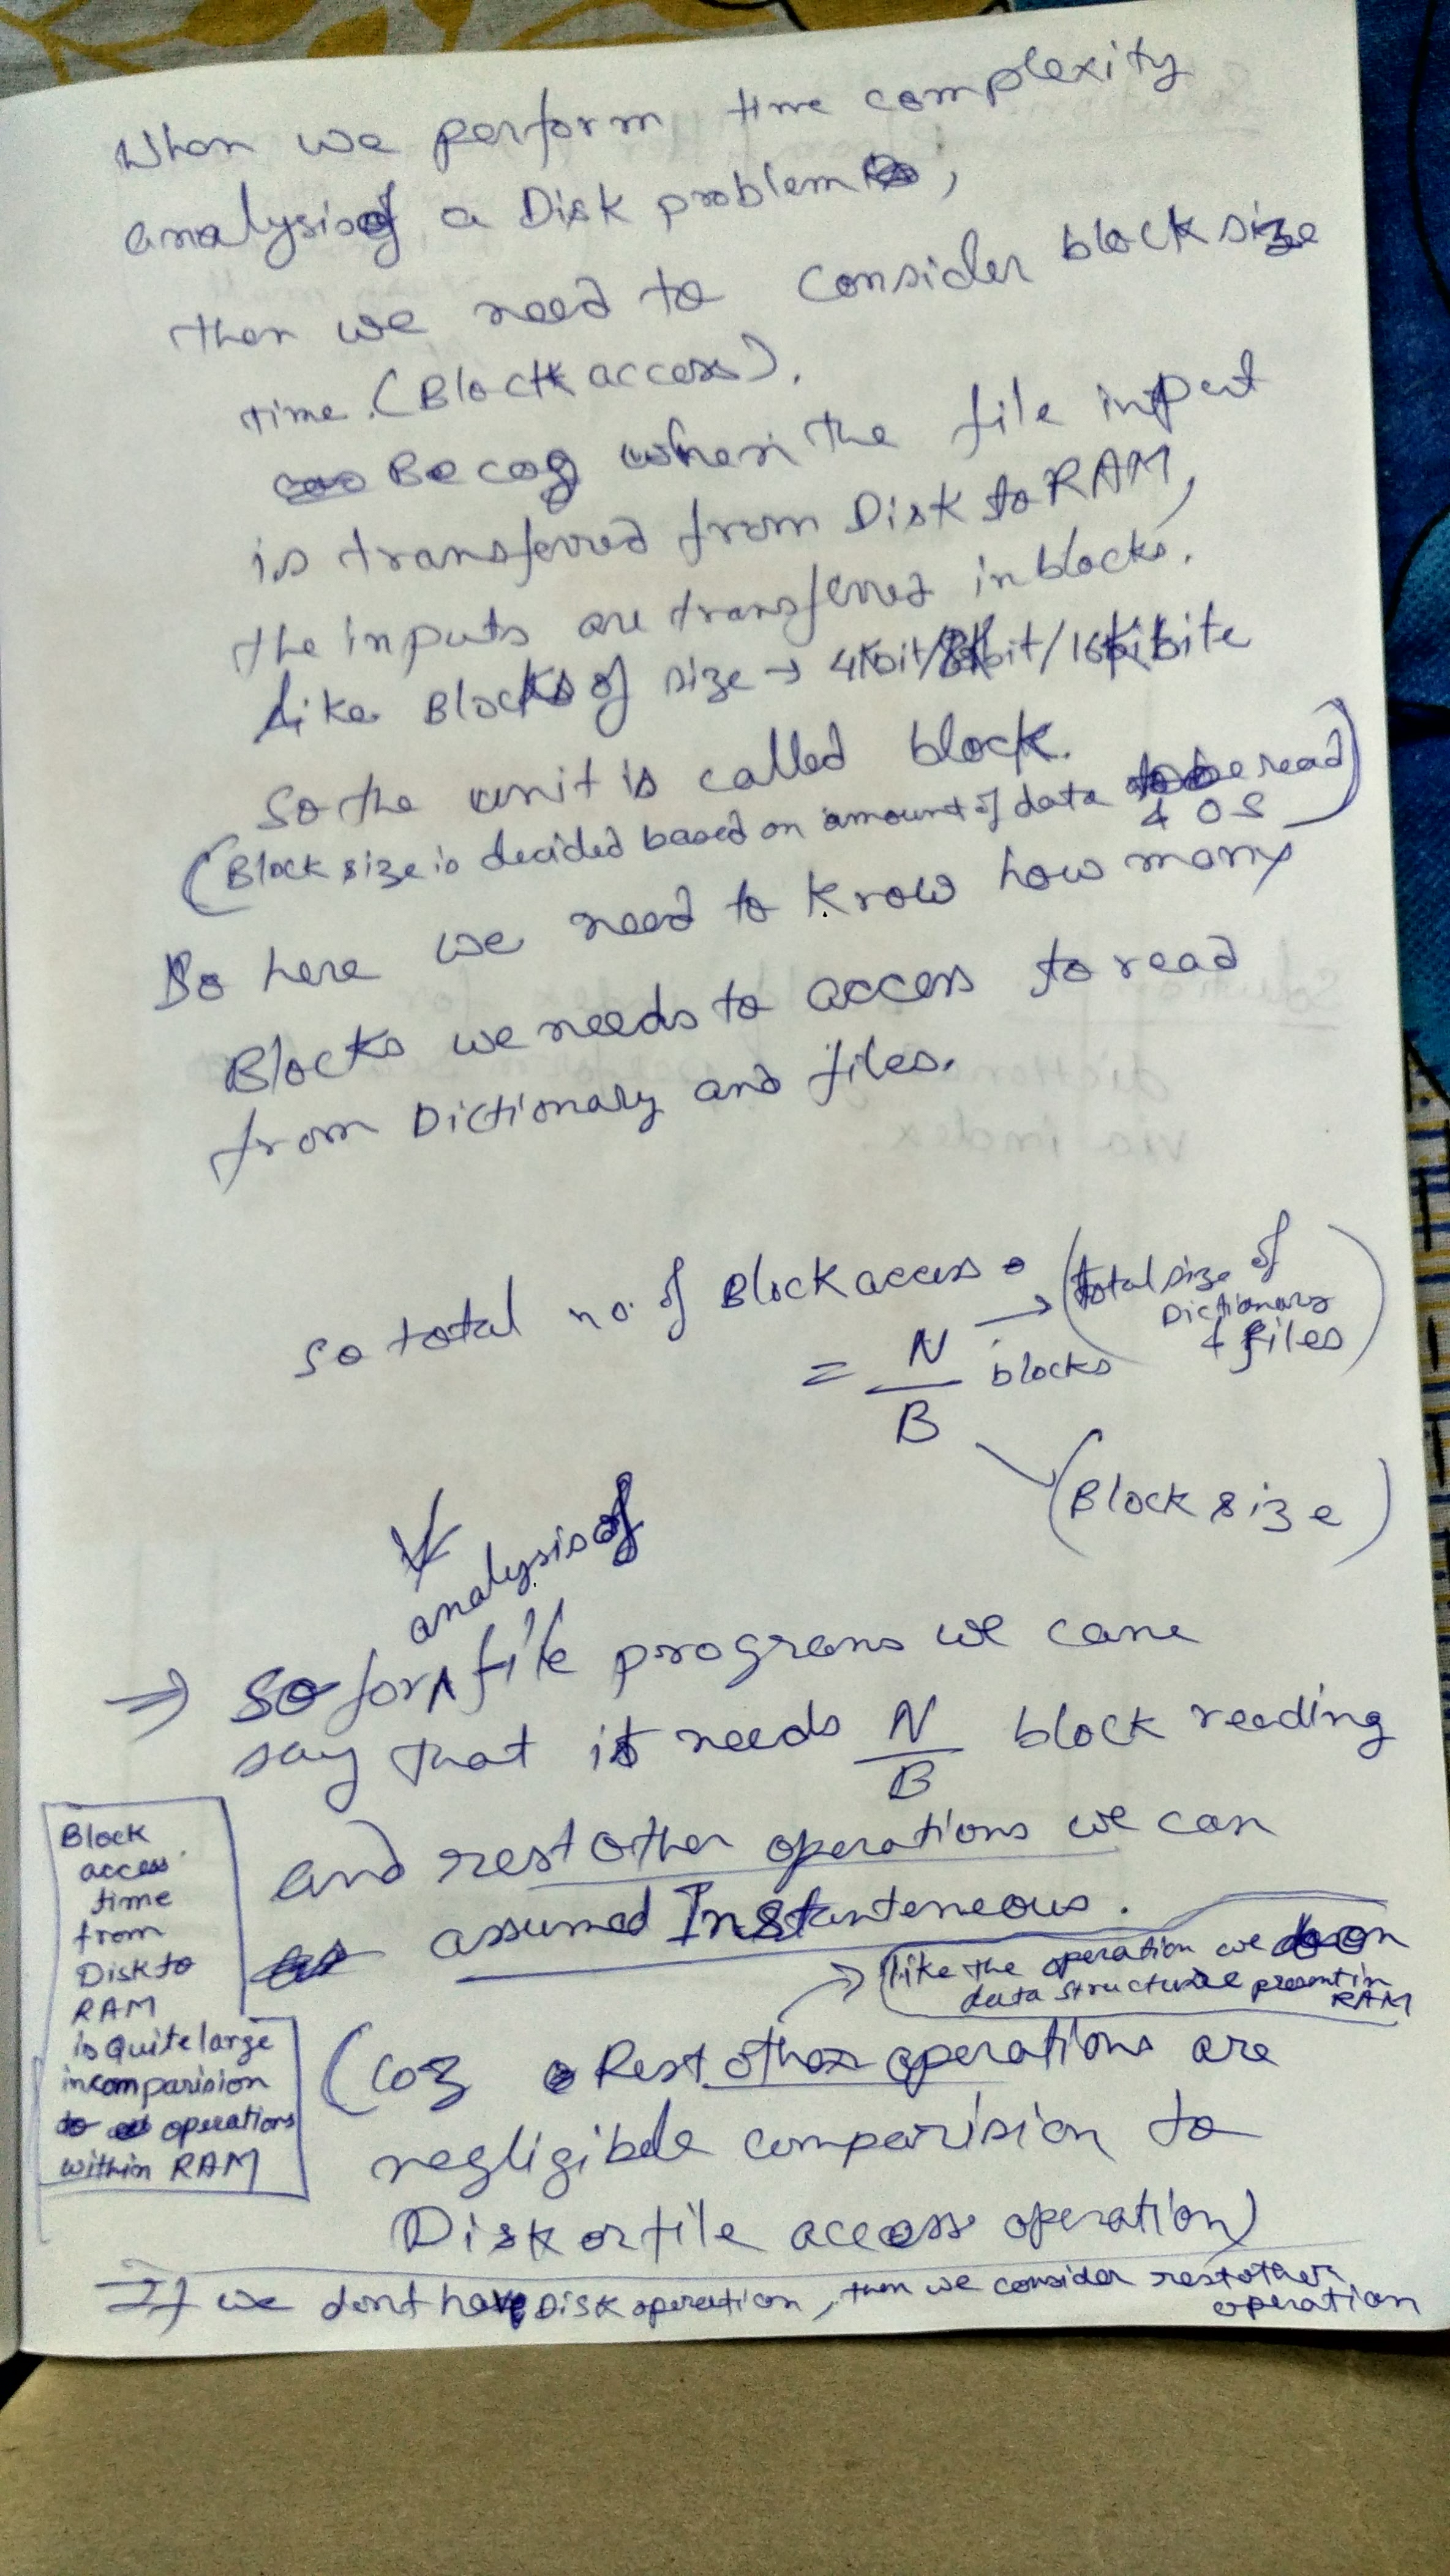 When we perform time complexity
analysis of a Disk problem,
then we need to consider block size
time. (Block access).
Becog when the file input
is transferred from Disk to RAM,
the inputs are transferred in blocks.
Like Blocks of size → 4Kbit/8Kbit/16Kbite
So the unit is called block.
(Block size is decided based on amount of data to be read
& OS)
So here we need to know how many
Blocks we needs to access to read
from Dictionary and files.
So total no. of Block access
= N/B blocks
→ (total size of
Dictionary
& files)
(Block size)
analysis of
⇒ So for ∧ file programs we cane
say that it needs N/B block reading
and rest other operations we can
assumed Instanteneous.
→ (like the operation we do on
data structure present in
RAM
(Coz Rest other operations are
negligible comparision to
Disk or file access operation)
Block
access
time
from
Disk to
RAM
is Quite large
in comparision
to operations
within RAM
⇒ If we dont have Disk operation, then we consider rest other
operation